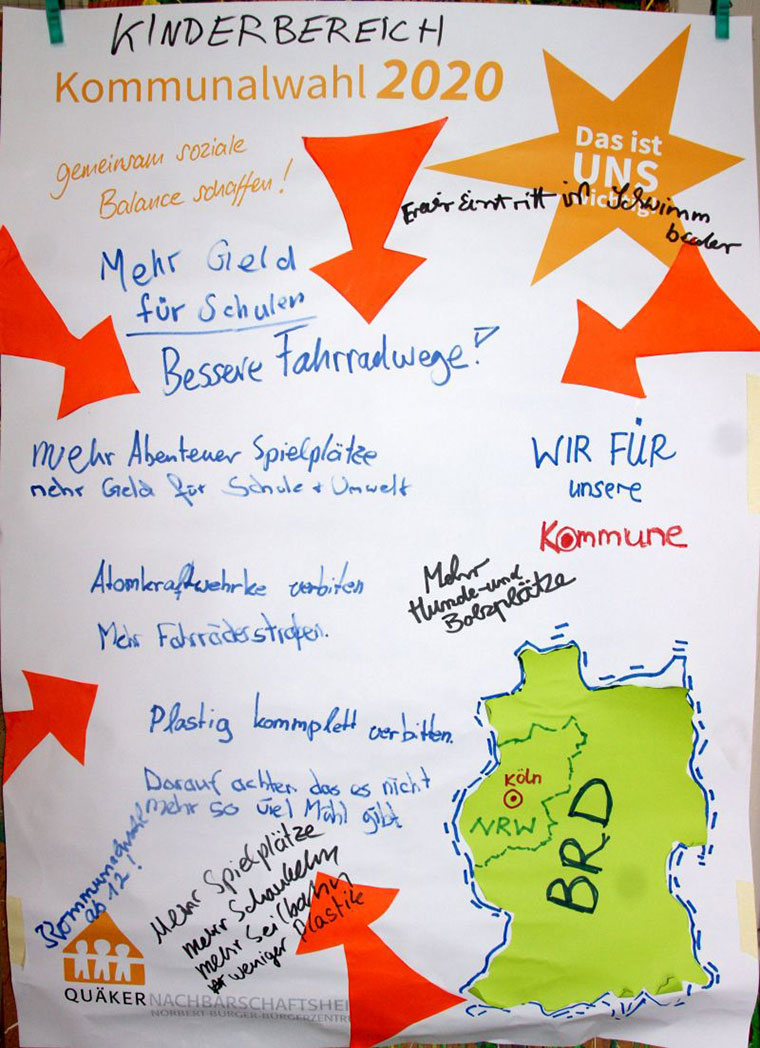 KINDERBEREICH
Kommunalwahl 2020
gemeinsam soziale
Balance schaffen!
Das ist
UNS
Eintritt in Schwimm
Mehr Geld
für Schulen
Bessere Fahrradwege!
mehr Abenteuer Spielplätze
mehr Geld für Schule + Umwelt
WIR FÜR
unsere
Kommune
Atomkraftwehrke verbiten
Mehr Fahrräderstraßen.
Mehr
Hunde- und
Bolzplätze
Plastig kommplett verbitten.
Darauf achten das es nicht
mehr so viel Mühl gibt
Köln
NRW
BRD
Kommunalwahl
ab 12!
Mehr Spielplätze
mehr Schaukeln
mehr Seilbahn
weniger Plastik
QUÄKER NACHBARSCHAFTSHEI
NORBERT-BURGER-BÜRGERZENTR